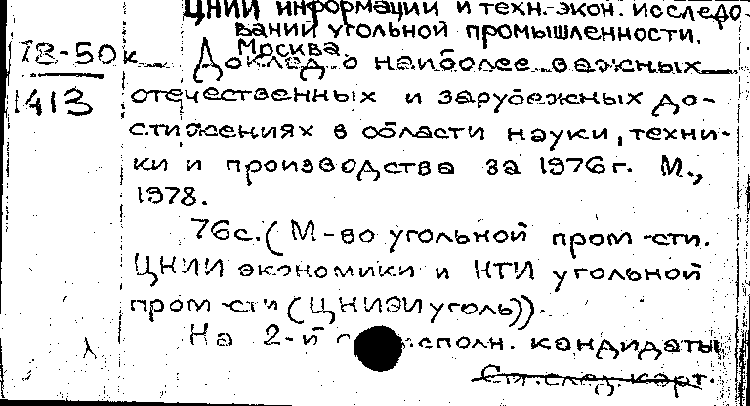 ЦНИИ информации и техн.-экон. исследо-
ваний угольной промышленности.
Москва
78-50к
1413
Доклад о наиболее важных
отечественных и зарубежных до-
стижениях в области науки, техни-
ки и производства за 1976г. М.,
1978.
76с. (М-во угольной пром-сти.
ЦНИИ экономики и НТИ угольной
пром-сти (ЦНИЭИуголь)).
На 2-й исполн. кандидаты
См. след. карт.